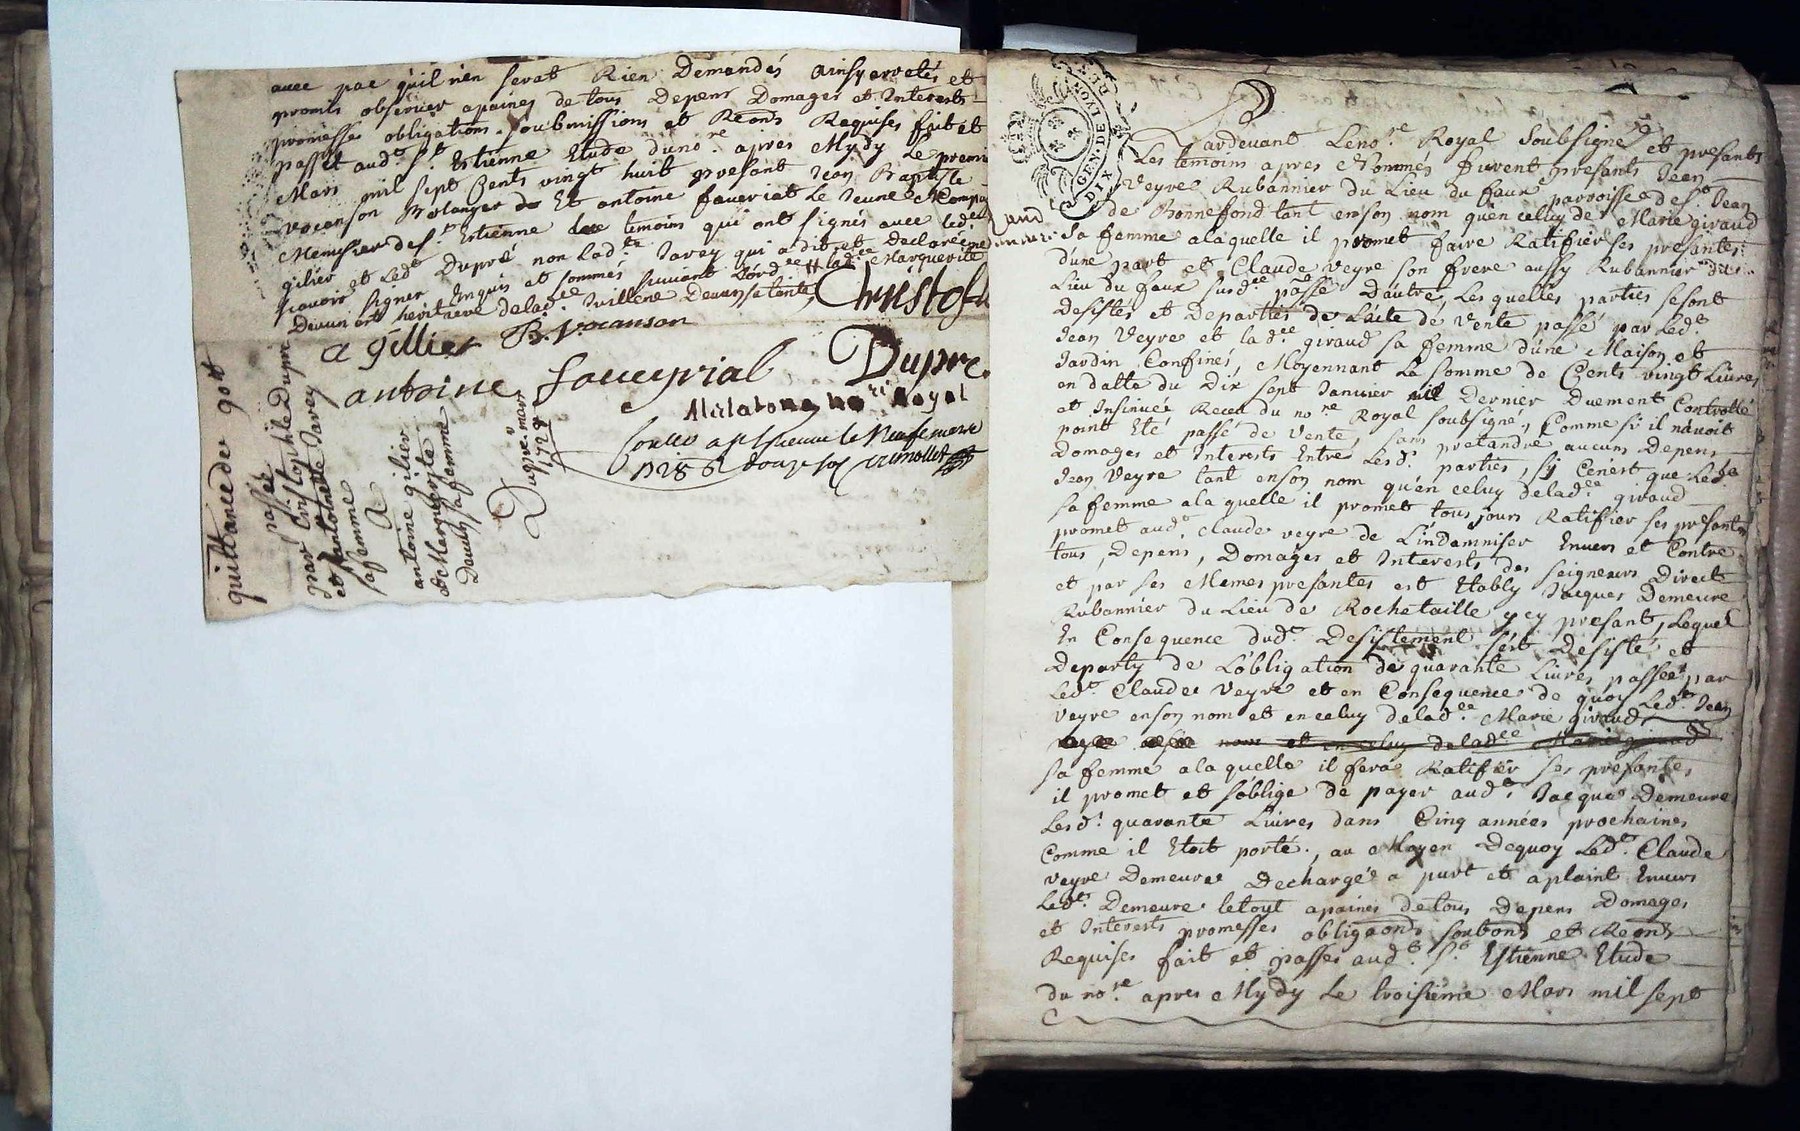 avec pac quil n'en serat Rien Demandés ainsy arretés et
promis observer apaines de tous Depens Domages et Interests
promesses obligations soubmissions et Reons Requises fait et
passé aud.t S.t Estienne Etude du no.re apres Mydy Le premi
Mars mil sept Cents vingt huit presant Jean Baptiste
vocanson Bolanger Et antoine faveriat Le Jeune
Menusier de S.t Estienne temoins qui ont signés avec led.
gilier et Led.t Dupré non Lad.te Javey qui a dit et Declaré ne
scavoir signer Enquis et sommés suivant Lord.ce lad.e Marguerite
Devun ont heritiere de lad.ee sa tante
Christofle
a gillier B. Vocanson
antoine faveyrial Dupre
no.re Royal
Conllé a St Estienne le Neuf mars
1728 douze sols
quittance de 90 tt
passée
par Christophle Dupré
et antoinette Javey
sa femme
A
antoine gilier
et Marguerite
Devun sa femme
Du pr.e mars
1728
GEN. DE LYON
DIX
Pardevant Leno.re Royal Soubsigné et presants
Les temoins apres Nommés furent presants Jean
Veyre Rubannier du Lieu du faux parroisse de S.t Jean
de Bonnefond tant en son nom qu'en celuy de Marie giraud
sa femme a laquelle il promet faire Ratifier ses presantes
d'une part et Claude Veyre son frere aussy Rubannier
Lieu du faux susd.ee passé D'autre, Les quelles parties se sont
desistés et Departies de Lacte de vente passé par Led.t
Jean Veyre et la d.ee giraud sa femme d'une Maison et
Jardin Confinés Moyennant La somme de Cents vingt Livres
en datte du Dix sept Janvier dernier Duement Controllé
et Insinuée Receu du no.re Royal soubsigné, Comme si il n'avoit
point Eté passé de vente, sans pretandre aucuns Depens
Domages et Interests Entre Lesd. parties, sy Cenest que Led.t
Jean Veyre tant en son nom qu'en celuy delad.ee giraud
sa femme a la quelle il promet tous jours Ratifier ses presantes
promet aud.t Claude veyre de L'indamniser Envers et Contre
tous, Depens, Domages et Interests des seigneurs Directs
et par ses Memes presantes est Etably Jacques Demeure
Rubannier du Lieu de Rochetaille y cy presant, Lequel
En Consequence dud.t Desistement s'est desisté et
departy de L'obligation de quarante Livres passée par
Led.t Claude Veyre et en Consequence de quoy Led.t Jean
veyre en son nom et en celuy delad.ee Marie giraud
nom et en celuy delad.ee Marie giraud
sa femme a laquelle il fera Ratifier ses presantes
il promet et s'oblige de payer aud.t Jacques Demeure
Lesd. quarante Livres dans Cinq années prochaines
Comme il Etoit porté, au Moyen Dequoy Led.t Claude
veyre Demeure Dechargé a purt et a plaint Envers
Led.t Demeure le tout apaines de tous depens Domages
et Interests promesses obligaons soubons et Reons
Requises fait et passés aud.t S.t Estienne Etude
du no.re apres Mydy Le troisieme Mars mil sept